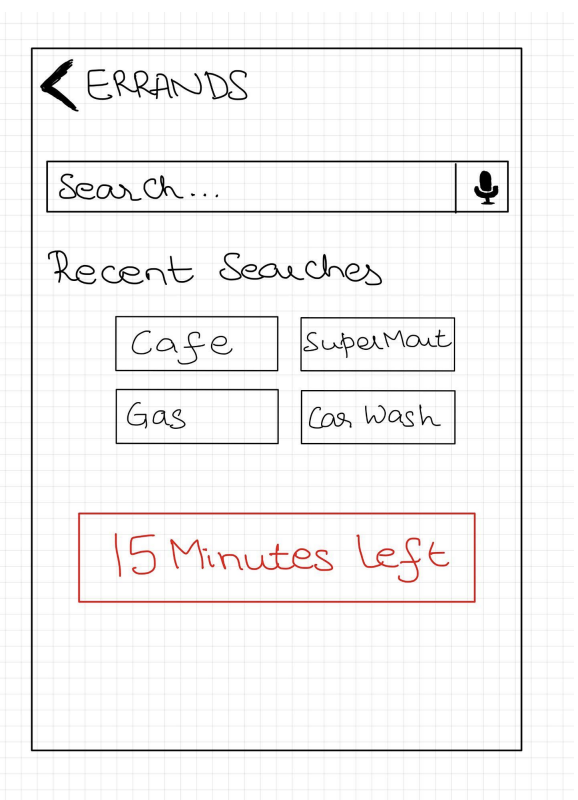 ERRANDS
Search...
Recent Searches
Cafe
SuperMart
Gas
Car Wash
15 Minutes left